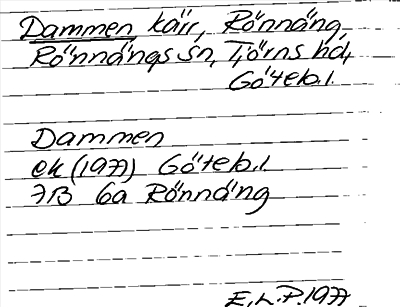 Dammen kärr, Rönnäng,
Rönnängs sn, Tjörns hd,
Göteb.l.
Dammen
ek (1977) Göteb.l
7B 6a Rönnäng
E.L.P. 1977